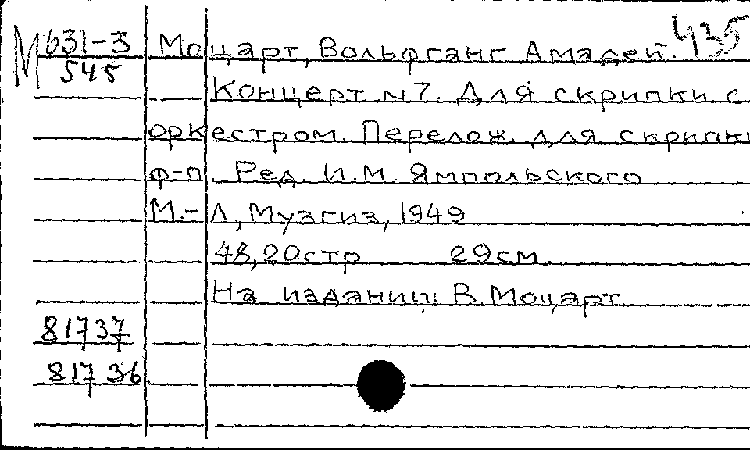 М 631-3 Моцарт, Вольфганг Амадей. 435
545
Концерт N 7. Для скрипки с
оркестром. Перелож. для скрипки
ф-п. Ред. И.М. Ямпольского
М.-Л, Музгиз, 1949
48,20стр 29см.
На издании: В. Моцарт
81737
81736